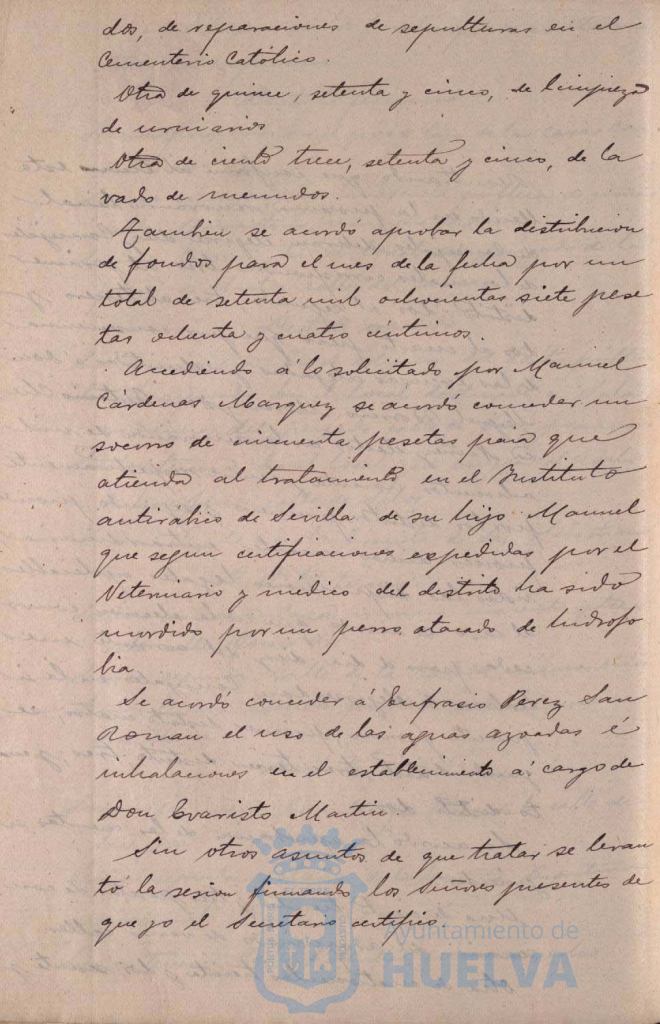 dos, de reparaciones de sepulturas en el
Cementerio Católico.
Otra de quince, setenta y cinco, de limpieza
de urinarios
Otra de ciento trece, setenta y cinco, de la
vado de menudos.
Tambien se acordó aprobar la distribucion
de fondos para el mes de la fecha por un
total de setenta mil ochocientas siete pese
tas ochenta y cuatro céntimos.
Accediendo á lo solicitado por Manuel
Cárdenas Marquez se acordó conceder un
socorro de cincuenta pesetas para que
atienda al tratamiento en el Instituto
antirábico de Sevilla de su hijo Manuel
que segun certificaciones expedidas por el
Veterinario y médico del distrito ha sido
mordido por un perro atacado de hidrofo
bia
Se acordó conceder á Eufrasio Perez San
Roman el uso de las aguas azoadas é
inhalaciones en el establecimiento á cargo de
Don Evaristo Martin.
Sin otros asuntos de que tratar se levan
tó la sesion firmando los Señores presentes de
que yo el Secretario certifico.
Ayuntamiento de
HUELVA